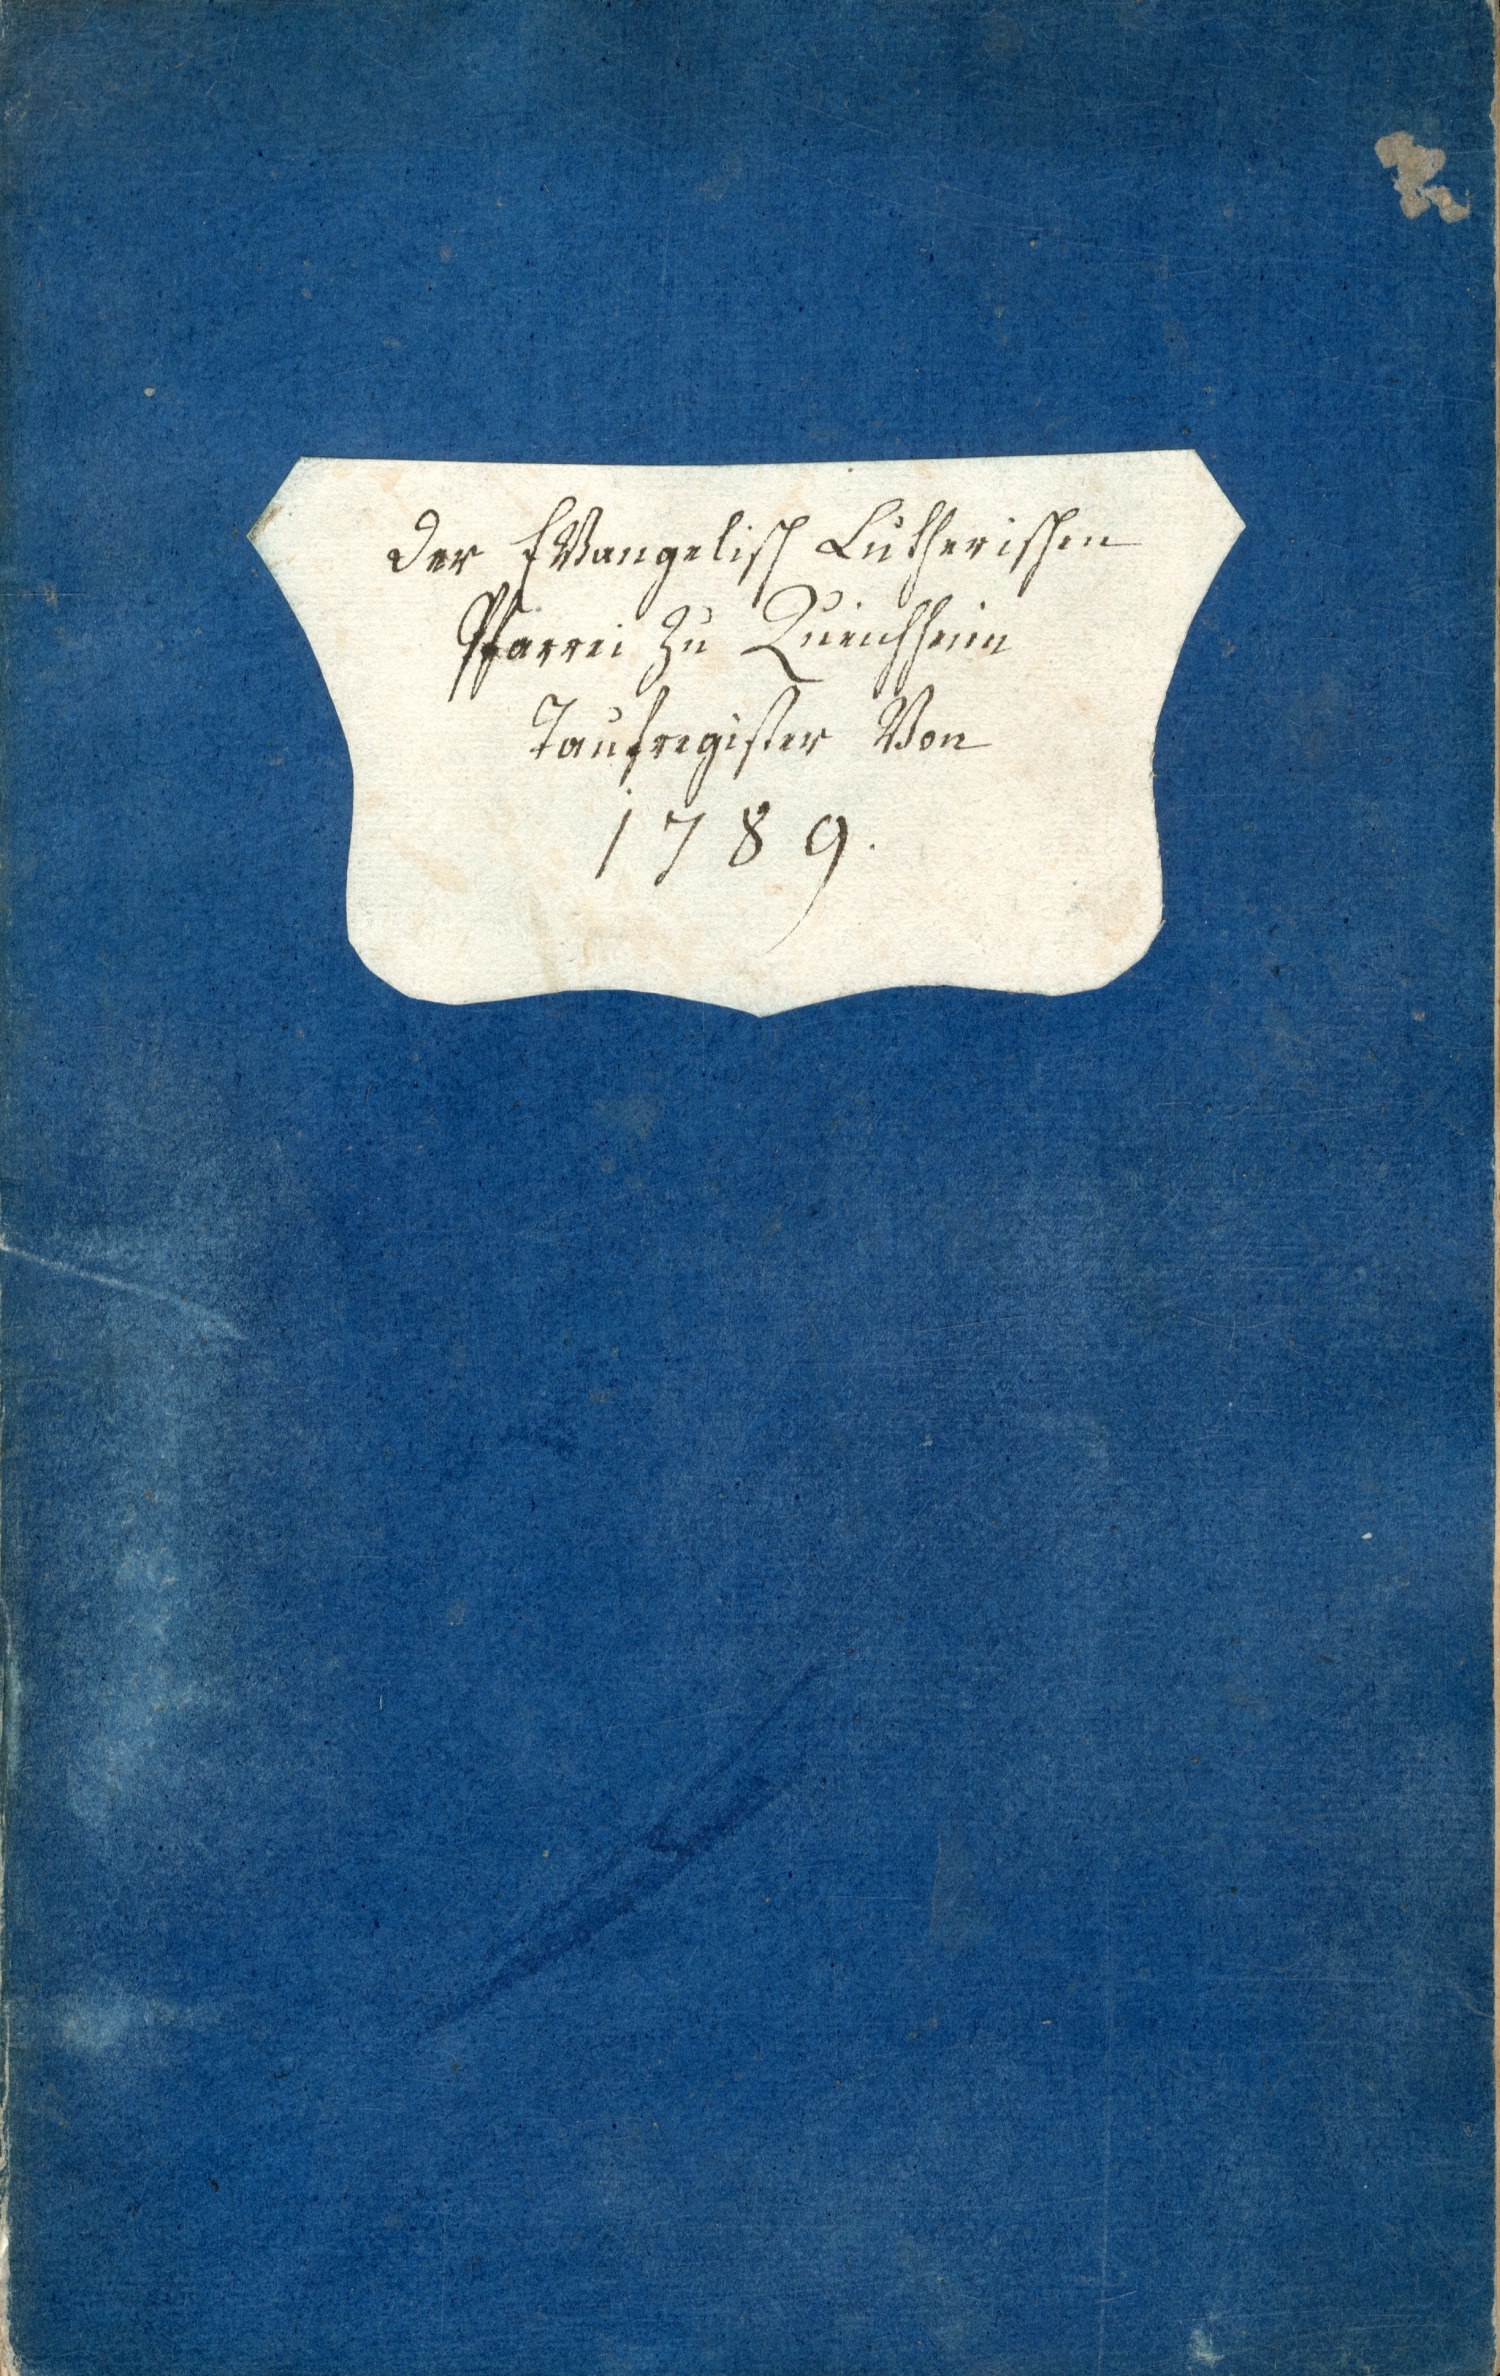 Der EVangelisch Lutherischen
Pfarrei zu Queichheim
Taufregister Von
1789.